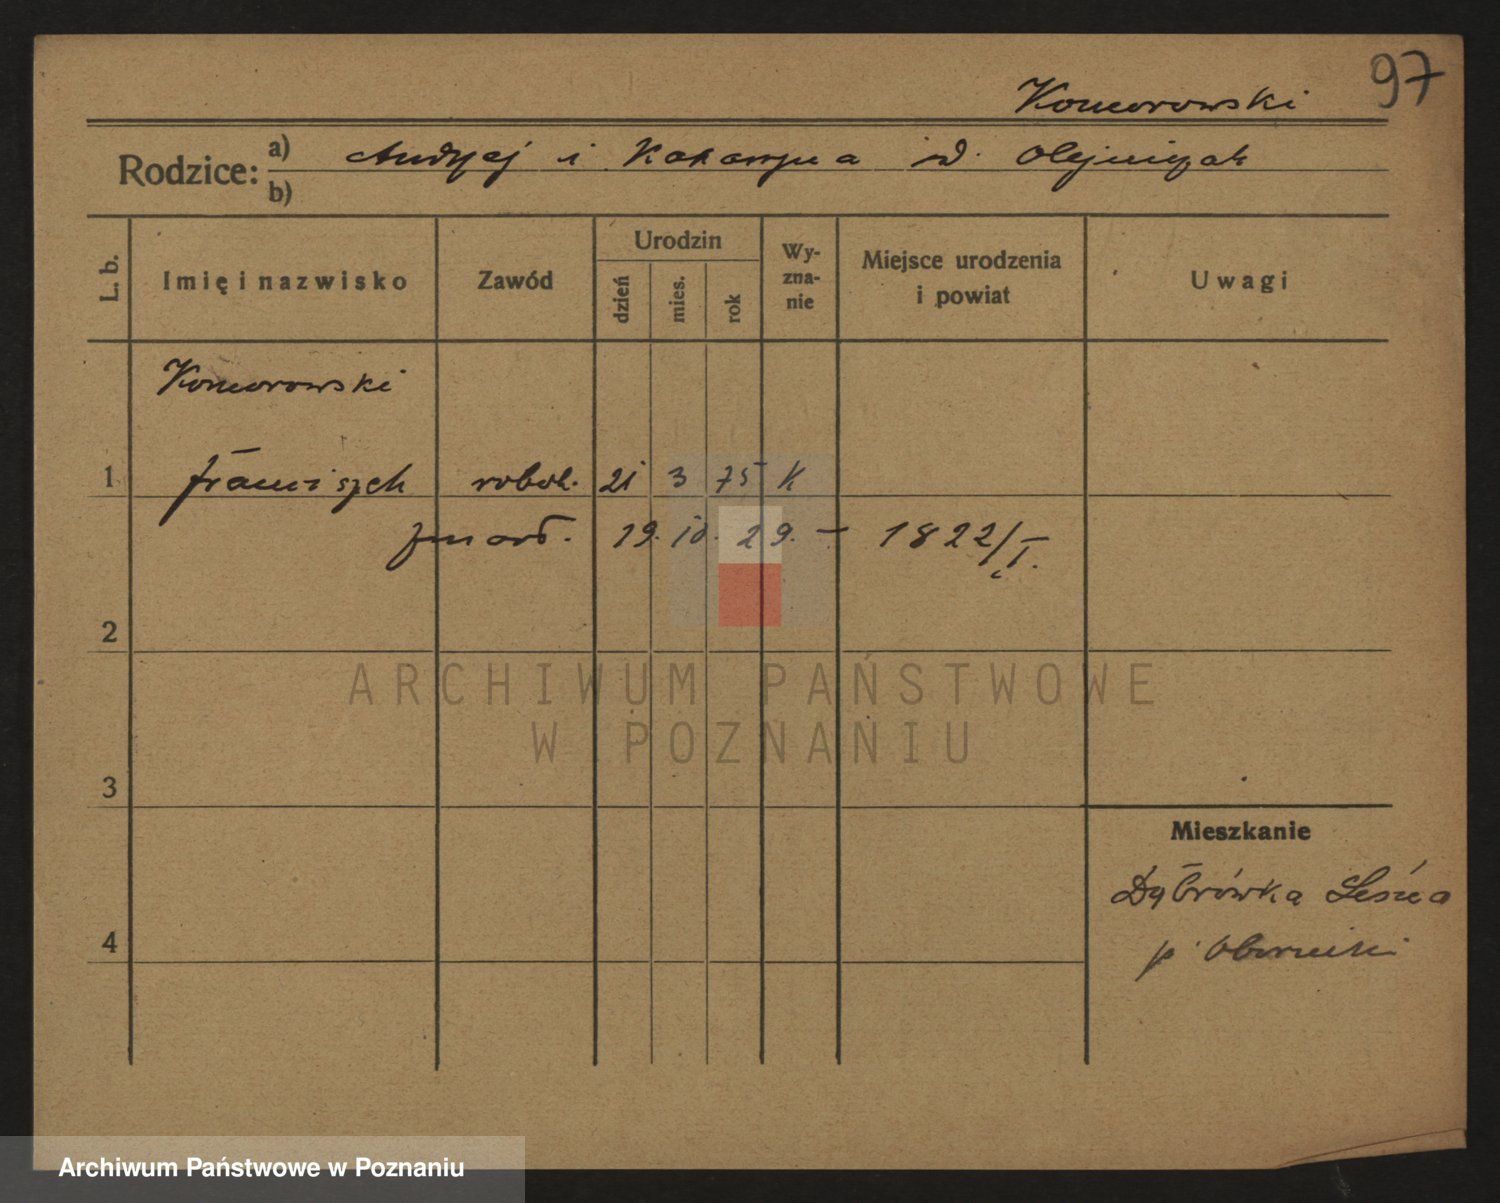 97
Komorowski
Rodzice: a) Andrzej i Katarzyna Olejniczak
b)
L. b. Imię i nazwisko Zawód Urodzin dzień mies. rok Wyzna-nie Miejsce urodzenia i powiat Uwagi
Komorowski
1 Franciszek robot. 21 3 75 K
zmarł. 19. 10. 29. – 1822/I.
2
ARCHIWUM PAŃSTWOWE
W POZNANIU
3
Mieszkanie
Dąbrówka Leśna
4
p. Oborniki
Archiwum Państwowe w Poznaniu